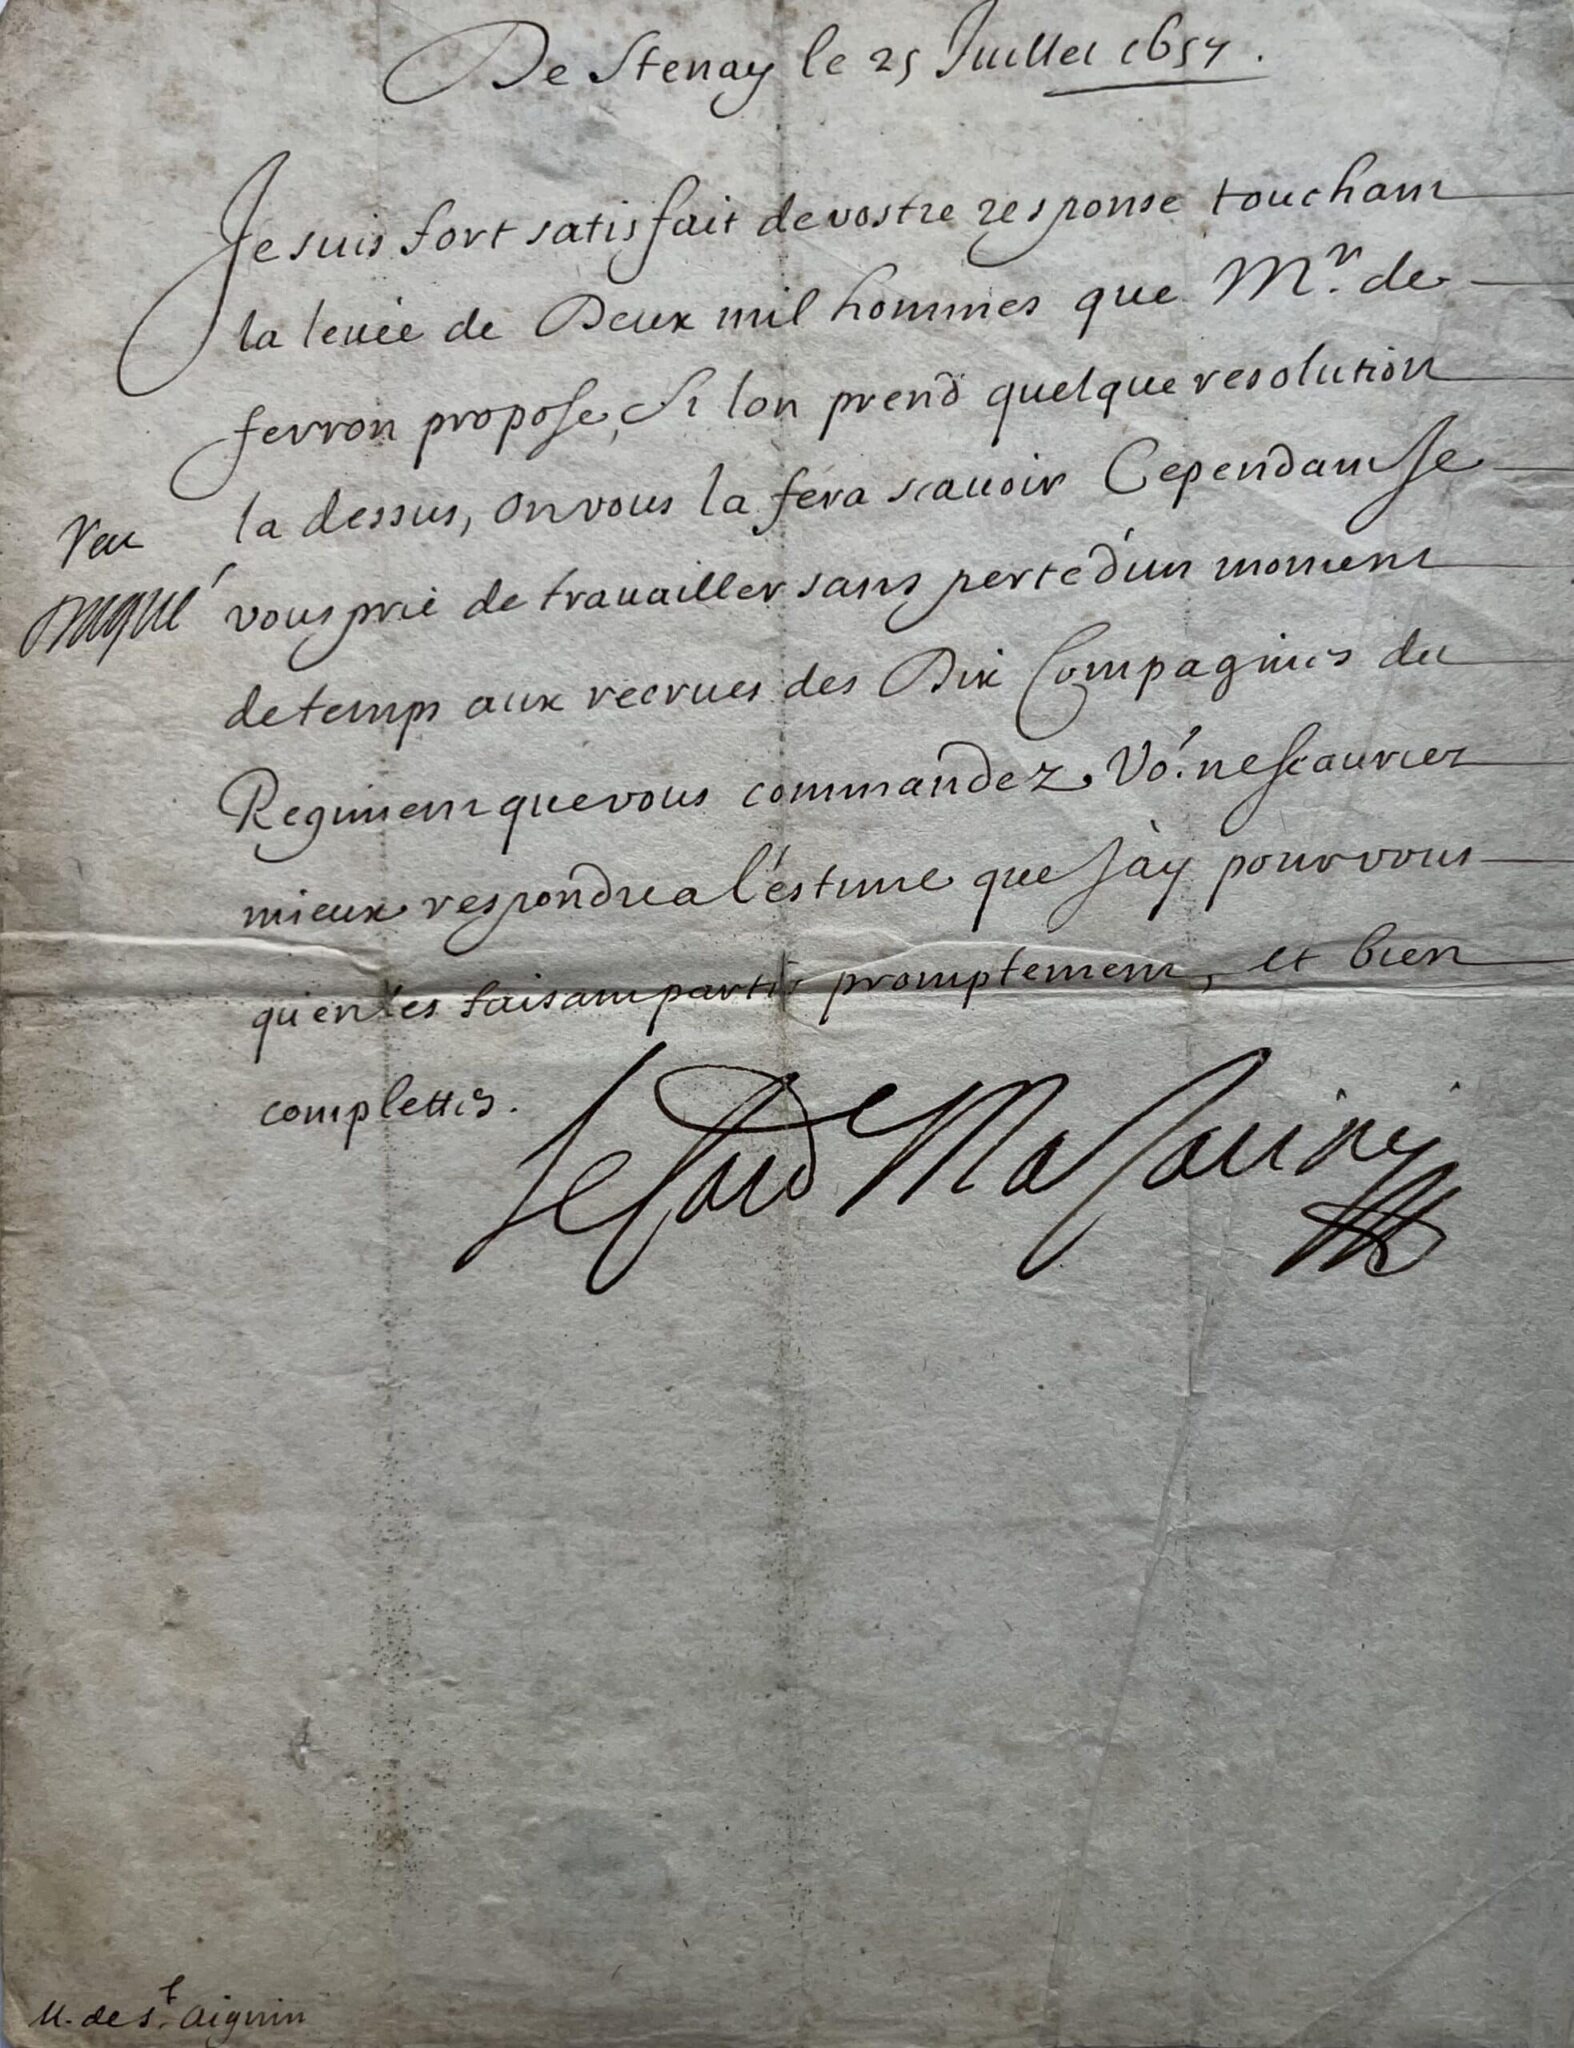 De Stenay le 25 Juillet 1657.
Je suis fort satisfait de vostre response touchant
la levée de Deux mil hommes que Mr. de
ferron propose, Si lon prend quelque resolution
la dessus, on vous la fera scauoir Cependant Je
Veu
vous prie de trauailler sans perte d'un moment
de temps aux recrues des Dix Compagnies du
Regiment que vous commandez. Vo'. ne scauriez
mieux respondre a l'estime que J'ay pour vous
qu'en les faisant partir promptement, et bien
complettes.
le Card Mazarini
M. de St. Aignin